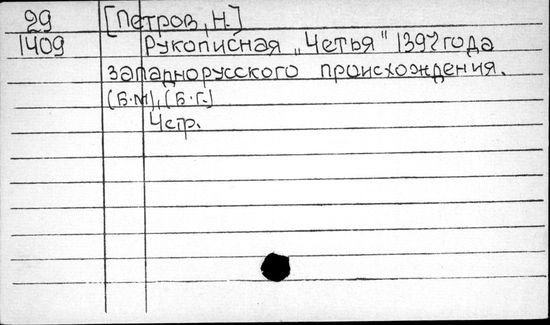 29 [Петров, Н.]
1409 Рукописная „Четья" 1397 года
западнорусского происхождения.
(Б.м), (Б.г.)
4стр.